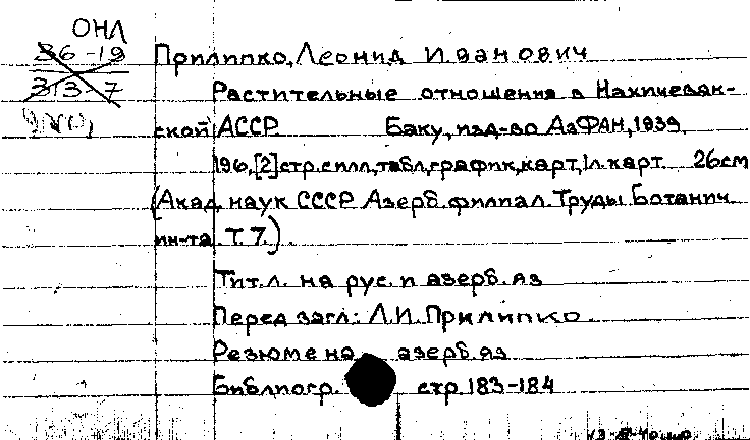 ОНЛ
36-19
313 7
Прилипко, Леонид Иванович
Растительные отношения в Нахичеван-
ской АССР Баку, изд-во АзФАН, 1939,
196, [2] стр. с илл., табл., график., карт, 1 л. карт 26 см
(Акад. наук СССР. Азерб. филиал. Труды Ботанич.
ин-та. Т. 7.).
Тит. л. на рус. и азерб. яз
Перед загл.: Л.И. Прилипко.
Резюме на азерб. яз
Библиогр. стр. 183-184